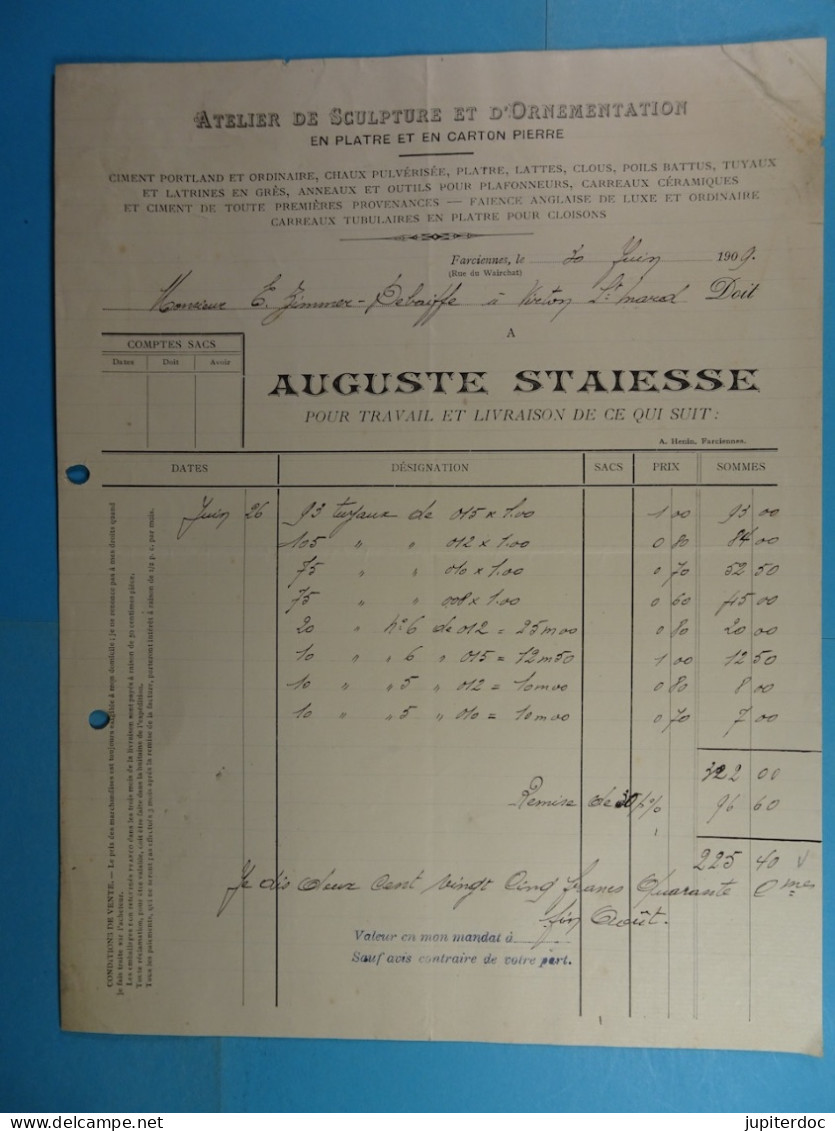 ATELIER DE SCULPTURE ET D'ORNEMENTATION
EN PLATRE ET EN CARTON PIERRE
CIMENT PORTLAND ET ORDINAIRE, CHAUX PULVÉRISÉE, PLATRE, LATTES, CLOUS, POILS BATTUS, TUYAUX
ET LATRINES EN GRÈS, ANNEAUX ET OUTILS POUR PLAFONNEURS, CARREAUX CÉRAMIQUES
ET CIMENT DE TOUTE PREMIÈRES PROVENANCES — FAIENCE ANGLAISE DE LUXE ET ORDINAIRE
CARREAUX TUBULAIRES EN PLATRE POUR CLOISONS
Farciennes, le 30 Juin 1909.
(Rue du Wairchat)
Monsieur E. Zimmer-Debaiffe à Virton St Mard Doit
A
COMPTES SACS
Dates Doit Avoir
AUGUSTE STAIESSE
POUR TRAVAIL ET LIVRAISON DE CE QUI SUIT :
A. Henin, Farciennes.
DATES DÉSIGNATION SACS PRIX SOMMES
Juin 26 93 tuyaux de 015 x 1.00 1 00 93 00
105 " " 012 x 1.00 0 80 84 00
75 " " 010 x 1.00 0 70 52 50
75 " " 008 x 1.00 0 60 45 00
20 " n° 6 de 012 = 25m00 0 80 20 00
10 " " 6 " 015 = 12m50 1 00 12 50
10 " " 5 " 012 = 10m00 0 80 8 00
10 " " 5 " 010 = 10m00 0 70 7 00
322 00
Remise de 30 % 96 60
225 40
Je dis deux cent vingt cinq francs Quarante cmes
fin Août.
Valeur en mon mandat à
Sauf avis contraire de votre part.
CONDITIONS DE VENTE. — Le prix des marchandises est toujours exigible à mon domicile ; je ne renonce pas à mes droits quand
je fais traite sur l'acheteur.
Les emballages non retournés FRANCO dans les trois mois de la livraison sont payés à raison de 70 centimes pièce.
Toute réclamation, pour être valable, doit être faite dans la huitaine de l'expédition.
Tous les paiements, qui ne seront pas effectués 3 mois après la remise de la facture, porteront intérêt à raison de 1/2 p. c. par mois.
jupiterdoc